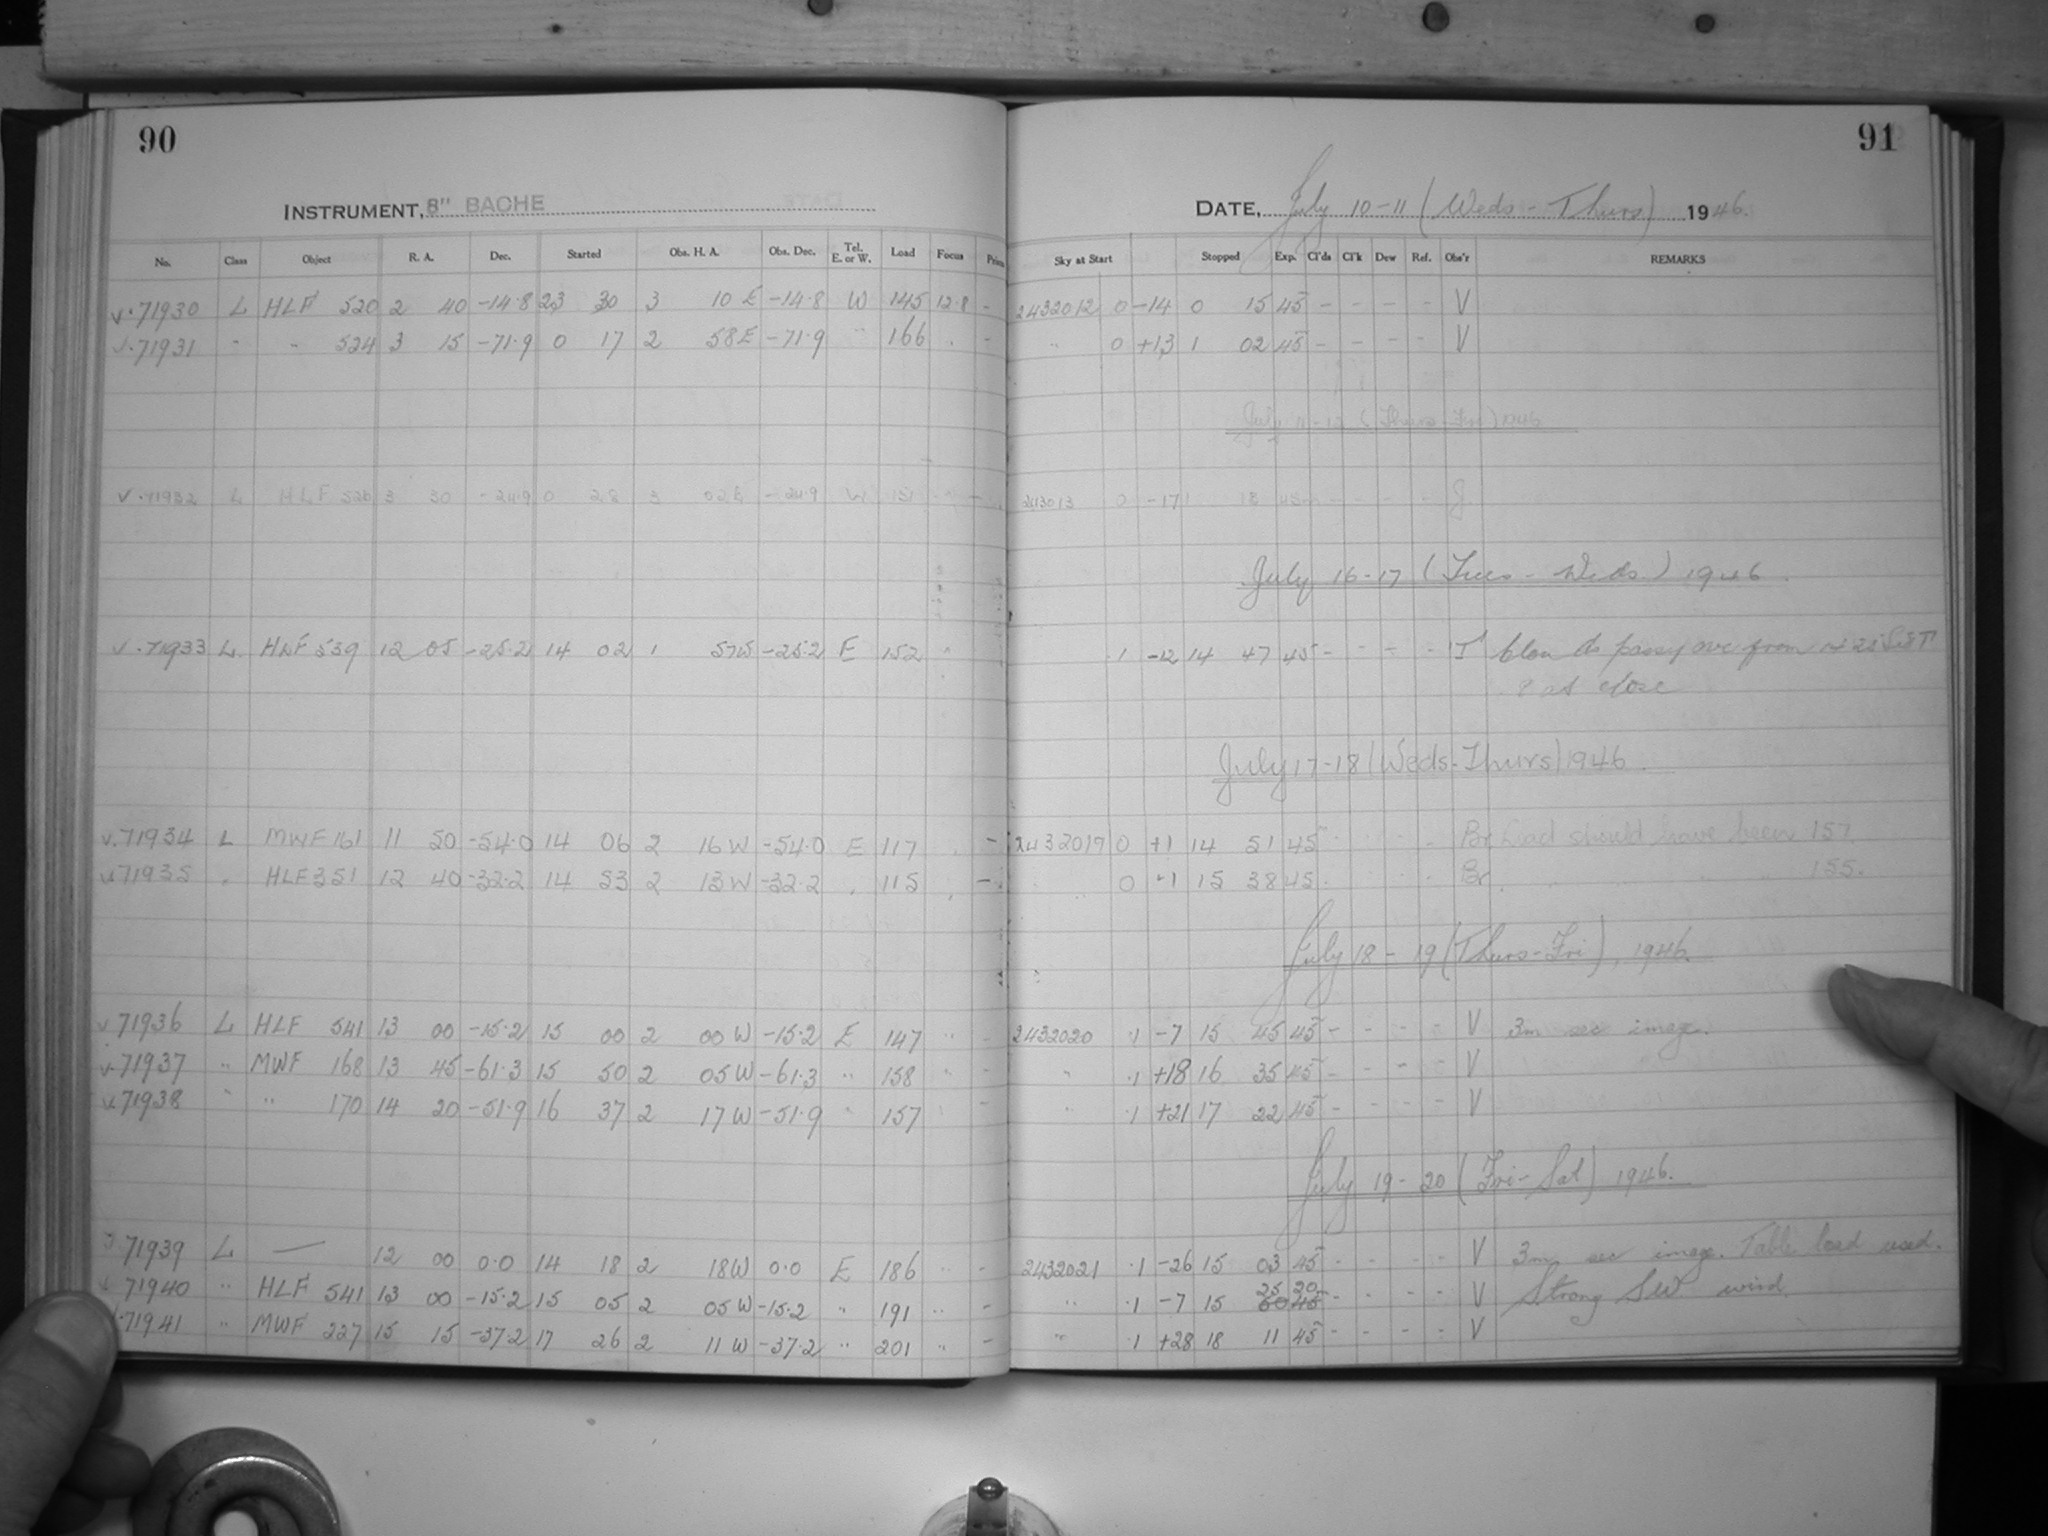 90
INSTRUMENT, 8" BACHE
No. Class Object R. A. Dec. Started Obs. H. A. Obs. Dec. Tel. E. or W. Load Focus
v.71930 L HLF 520 2 40 -14.8 23 30 3 10 E -14.8 W 145 12.8 -
v.71931 " " 524 3 15 -71.9 0 17 2 58 E -71.9 " 166 " -
v.71932 L HLF 3 30 -24.9 0 28 3 02 E -24.9 W 151
v.71933 L HLF 539 12 05 -25.2 14 02 1 57 W -25.2 E 152 "
v.71934 L MWF 161 11 50 -54.0 14 06 2 16 W -54.0 E 117 " -
v.71935 " HLF 351 12 40 -32.2 14 53 2 13 W -32.2 " 115 " -
v.71936 L HLF 541 13 00 -15.2 15 00 2 00 W -15.2 E 147 " -
v.71937 " MWF 168 13 45 -61.3 15 50 2 05 W -61.3 " 158 " -
v.71938 " " 170 14 20 -51.9 16 37 2 17 W -51.9 " 157 " -
71939 L — 12 00 0.0 14 18 2 18 W 0.0 E 186 " -
71940 " HLF 541 13 00 -15.2 15 05 2 05 W -15.2 " 191 " -
71941 " MWF 227 15 15 -37.2 17 26 2 11 W -37.2 " 201 " -
91
DATE, July 10-11 (Weds - Thurs) 1946.
Sky at Start Stopped Exp. Cl'ds Cl'k Dew Ref. Obs'r REMARKS
2432012 0 -14 0 15 45 - - - - V
" 0 +13 1 02 45 - - - - V
July 11-12 (Thurs-Fri) 1946
243013 0 -17 1 18 45 - - - - J
July 16-17 (Tues - Weds.) 1946.
.1 -12 14 47 45 - - - - J Clouds passy over from
8 at close
July 17-18 (Weds-Thurs) 1946.
2432019 0 +1 14 51 45 Br Load should have been 157.
" 0 +1 15 38 45 Br. " " " " 155.
July 18-19 (Thurs-Fri), 1946.
2432020 .1 -7 15 45 45 - - - - V 3m sec image.
" .1 +18 16 35 45 - - - - V
" .1 +21 17 22 45 - - - - V
July 19-20 (Fri-Sat) 1946.
2432021 .1 -26 15 03 45 - - - - V 3m sec image. Table load used.
" .1 -7 15 25 20 - - - - V Strong SW wind.
" .1 +28 18 11 45 - - - - V